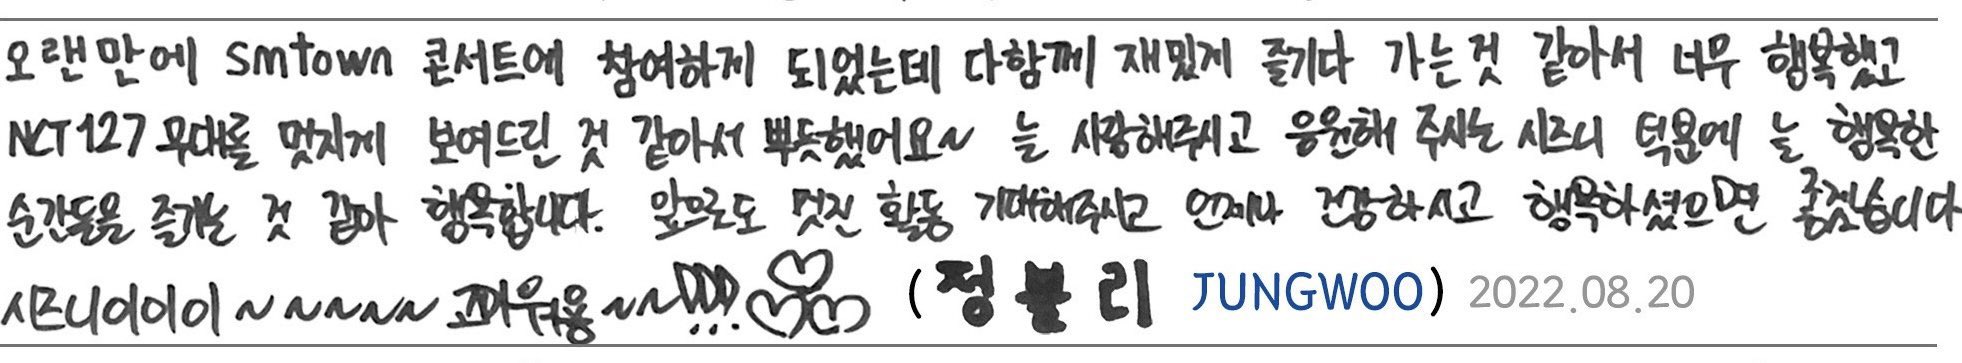 오랜만에 smtown 콘서트에 참여하게 되었는데 다함께 재밌게 즐기다 가는것 같아서 너무 행복했고
NCT 127 무대를 멋지게 보여드린 것 같아서 뿌듯했어요~ 늘 사랑해주시고 응원해 주시는 시즈니 덕분에 늘 행복한
순간들을 즐기는 것 같아 행복합니다. 앞으로도 멋진 활동 기대해주시고 언제나 건강하시고 행복하셨으면 좋겠습니다
시즈니이이이 ~~~~~ 고마워용 ~~!!!! ♡♡♡ (정불리 JUNGWOO) 2022.08.20